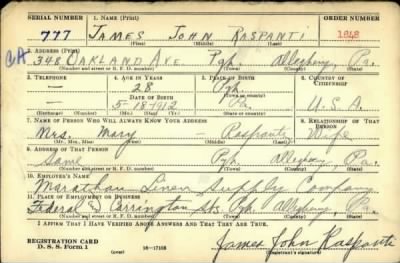 SERIAL NUMBER 1. NAME (Print) ORDER NUMBER
777 JAMES JOHN RASPANTI
(First) (Middle) (Last)
2. ADDRESS (Print)
348 OAKLAND AVE. Pgh. Allegheny, Pa.
(Number and street or R. F. D. number) (Town) (County) (State)
3. TELEPHONE 4. AGE IN YEARS 5. PLACE OF BIRTH 6. COUNTRY OF CITIZENSHIP
— 28 Pgh
DATE OF BIRTH (Town or county)
— 5-18-1912 Pa. U.S.A.
(Exchange) (Number) (Mo.) (Day) (Yr.) (State or country)
7. NAME OF PERSON WHO WILL ALWAYS KNOW YOUR ADDRESS 8. RELATIONSHIP OF THAT PERSON
Mrs. Mary — Raspanti Wife
(Mr., Mrs., Miss) (First) (Middle) (Last)
9. ADDRESS OF THAT PERSON
Same Pgh. Allegheny, Pa.
(Number and street or R. F. D. number) (Town) (County) (State)
10. EMPLOYER'S NAME
Marathon Linen Supply Company
11. PLACE OF EMPLOYMENT OR BUSINESS
Federal & Carrington Sts. Pgh. Allegheny, Pa.
(Number and street or R. F. D. number) (Town) (County) (State)
I AFFIRM THAT I HAVE VERIFIED ABOVE ANSWERS AND THAT THEY ARE TRUE.
REGISTRATION CARD
D. S. S. Form 1 (over) 16—17105 James John Raspanti
(Registrant's signature)